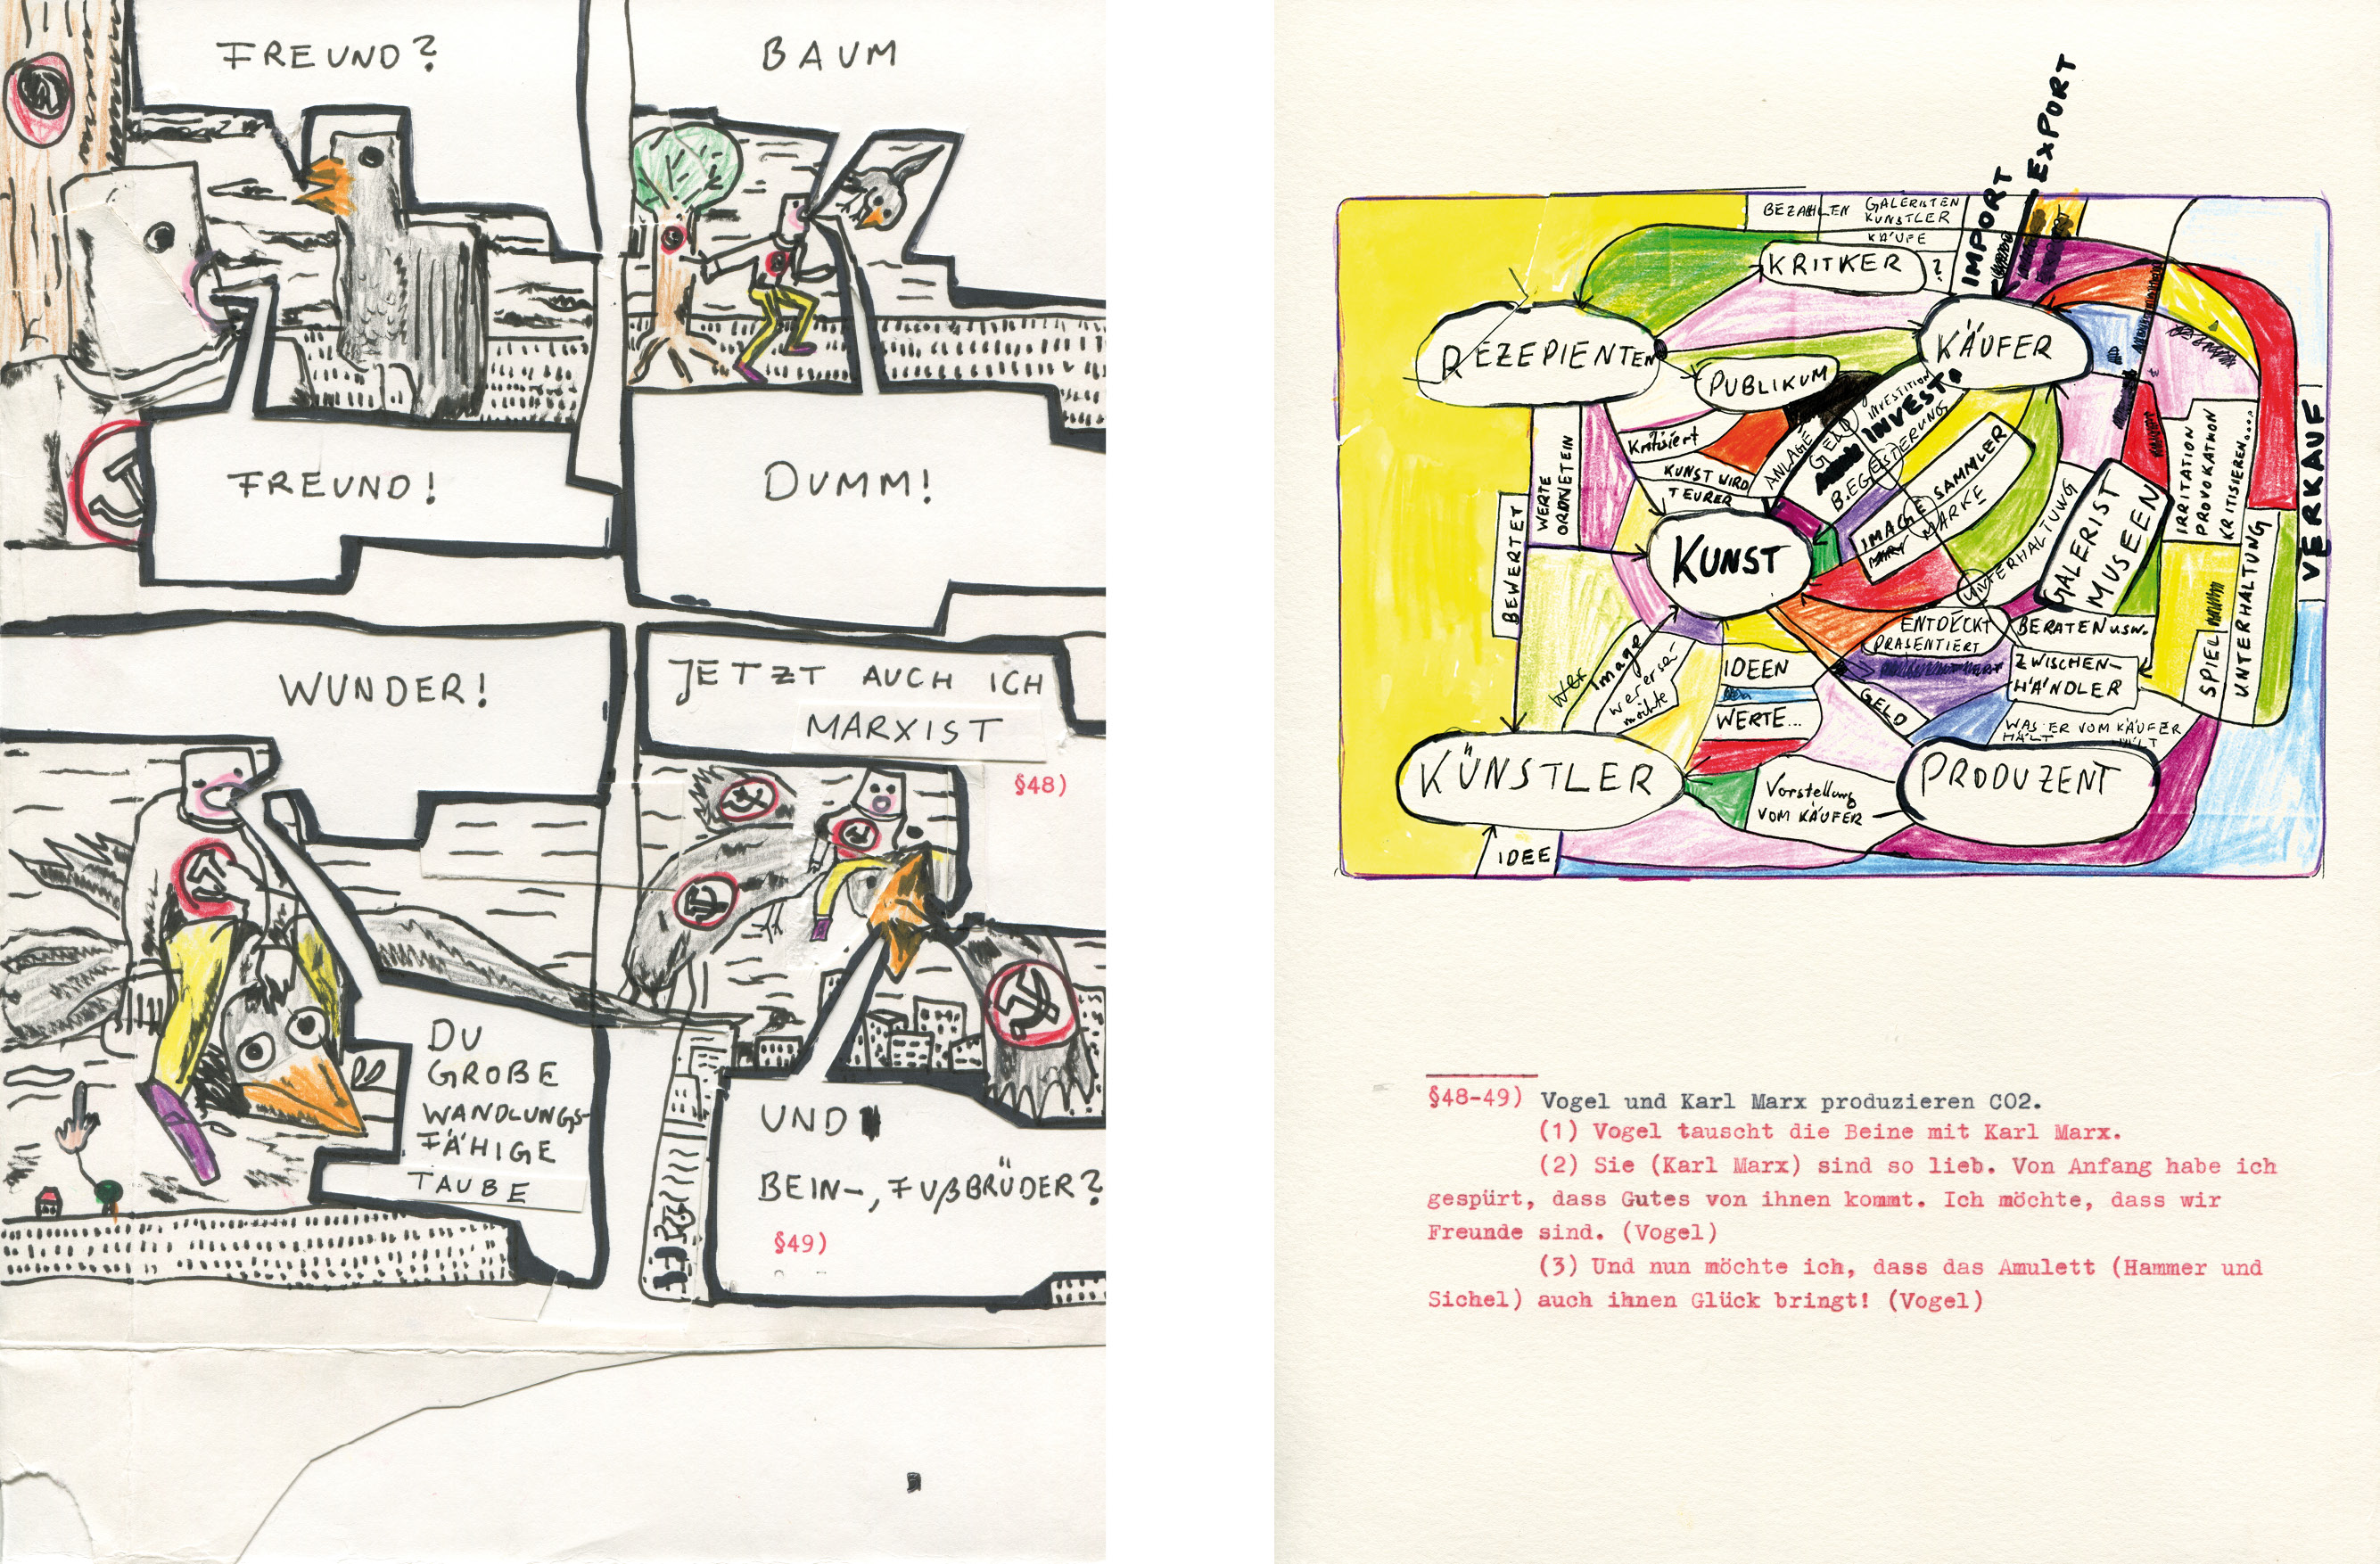 FREUND?
FREUND!
BAUM
DUMM!
WUNDER!
DU
GROßE
WANDLUNGS-
FÄHIGE
TAUBE
JETZT AUCH ICH
MARXIST
§48)
UND
BEIN-, FUßBRÜDER?
§49)
EXPORT
IMPORT
BEZAHLEN
GALERISTEN
KÜNSTLER
KÄUFE
KRITKER ?
REZEPIENTEN
KÄUFER
PUBLIKUM
Kritisiert
KUNST WIRD
TEURER
ANLAGE
GELD
INVEST
INVESTITION
BEGEISTERUNG
SAMMLER
IMAGE
MARKE
WERTE
ORDNET EIN
BEWERTET
KUNST
UNTERHALTUNG
GALERIST
MUSEEN
IRRITATION
PROVOKATHON
KRITISIEREN....
VERKAUF
SPIEL
UNTERHALTUNG
ENTDECKT
PRÄSENTIERT
BERATEN usw.
ZWISCHEN-
HÄNDLER
Image
wer er sei
möchte
IDEEN
WERTE...
GELD
WAS ER VOM KÄUFER
HÄLT
KÜNSTLER
PRODUZENT
Vorstellung
VOM KÄUFER
IDEE
§48-49) Vogel und Karl Marx produzieren CO2.
(1) Vogel tauscht die Beine mit Karl Marx.
(2) Sie (Karl Marx) sind so lieb. Von Anfang habe ich
gespürt, dass Gutes von ihnen kommt. Ich möchte, dass wir
Freunde sind. (Vogel)
(3) Und nun möchte ich, dass das Amulett (Hammer und
Sichel) auch ihnen Glück bringt! (Vogel)